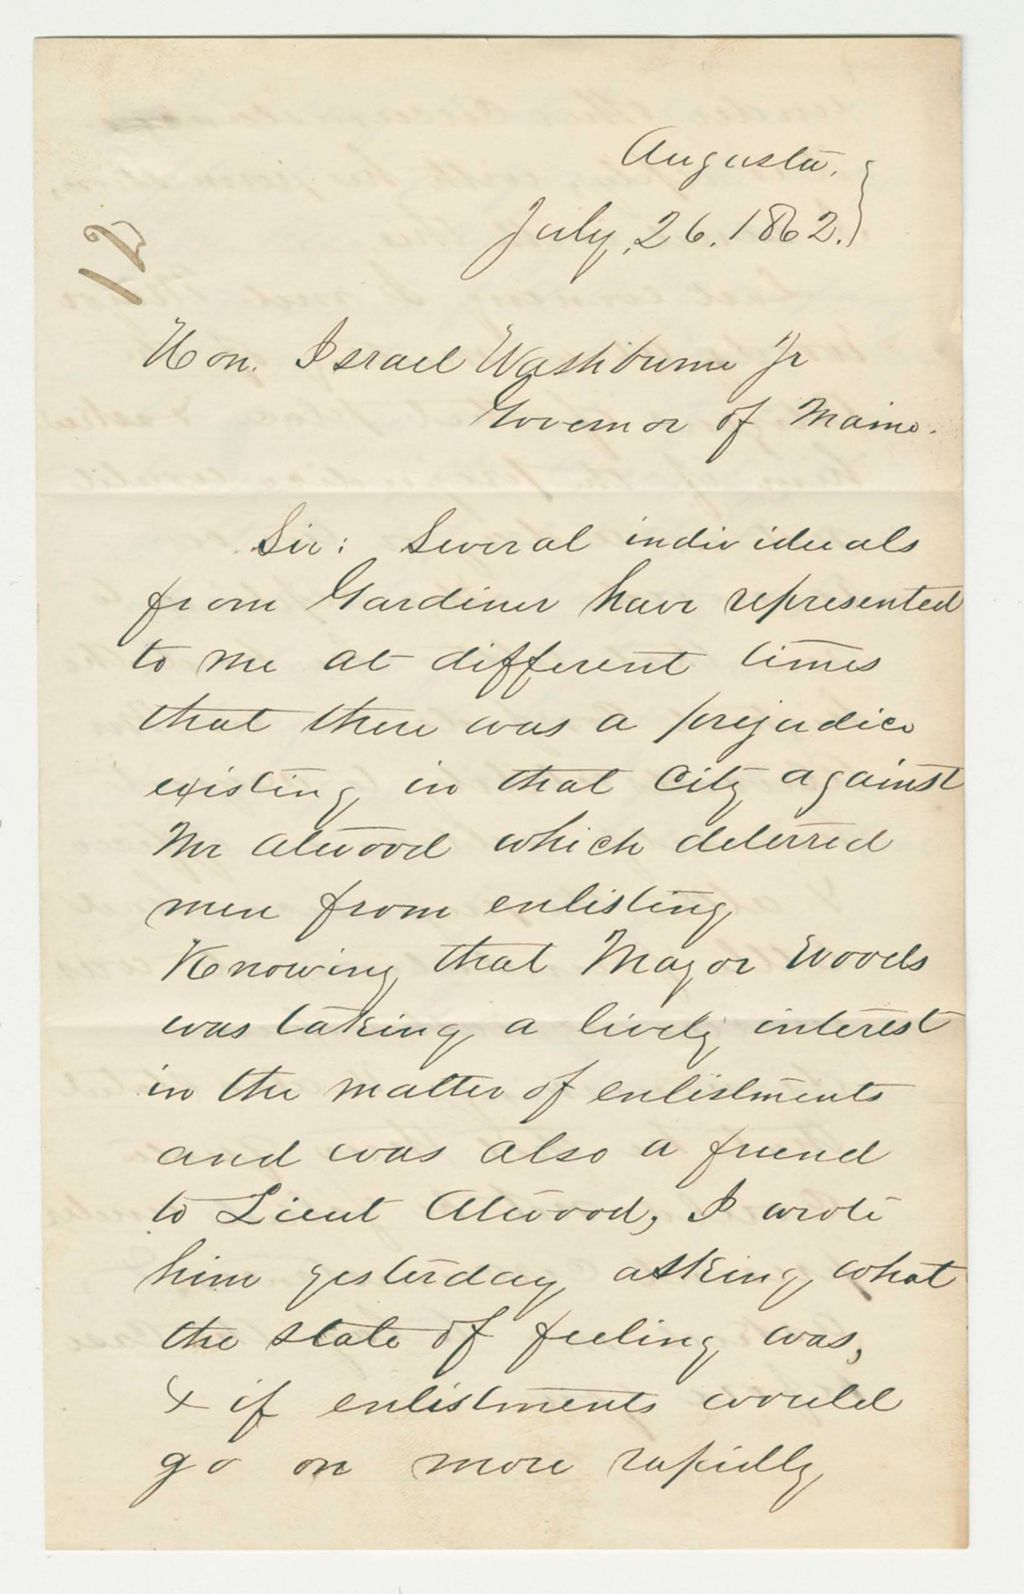 Augusta,
July, 26. 1862.
12
Hon. Israel Washburne Jr
Governor of Maine.
Sir: Several individuals
from Gardiner have represented
to me at different times
that there was a prejudice
existing in that City against
Mr Atwood which deterred
men from enlisting
Knowing that Mayor Woods
was taking a lively interest
in the matter of enlistments
and was also a friend
to Lieut Atwood, I wrote
him yesterday asking what
the state of feeling was,
& if enlistments would
go on more rapidly